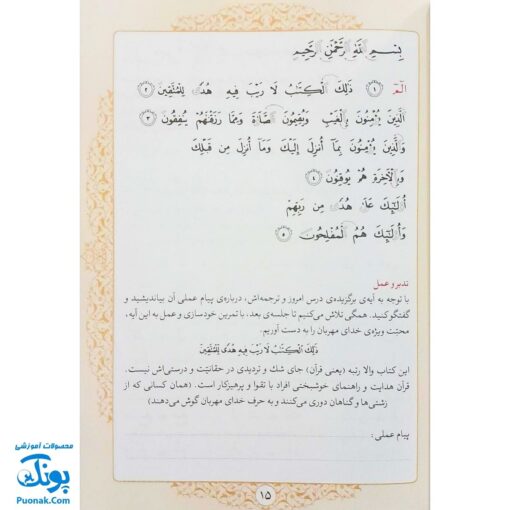 بِسْمِ اللَّهِ الرَّحْمَٰنِ الرَّحِيمِ
الٓمٓ ﴿١﴾ ذَٰلِكَ الْكِتَٰبُ لَا رَيْبَ فِيهِ هُدًى لِلْمُتَّقِينَ ﴿٢﴾
الَّذِينَ يُؤْمِنُونَ بِالْغَيْبِ وَيُقِيمُونَ الصَّلَوٰةَ وَمِمَّا رَزَقْنَٰهُمْ يُنْفِقُونَ ﴿٣﴾
وَالَّذِينَ يُؤْمِنُونَ بِمَآ أُنْزِلَ إِلَيْكَ وَمَآ أُنْزِلَ مِنْ قَبْلِكَ
وَبِالْأَخِرَةِ هُمْ يُوقِنُونَ ﴿٤﴾
أُولَٰٓئِكَ عَلَىٰ هُدًى مِنْ رَبِّهِمْ
وَأُولَٰٓئِكَ هُمُ الْمُفْلِحُونَ ﴿٥﴾
تدبر و عمل
با توجه به آیه‌ی برگزیده‌ی درس امروز و ترجمه‌اش، درباره‌ی پیام عملی آن بیاندیشید و
گفتگو کنید. همگی تلاش می‌کنیم تا جلسه‌ی بعد، با تمرین خودسازی و عمل به این آیه،
محبّت ویژه‌ی خدای مهربان را به دست آوریم.
ذَٰلِكَ الْكِتَٰبُ لَا رَيْبَ فِيهِ هُدًى لِلْمُتَّقِينَ
این کتاب والا رتبه (یعنی قرآن) جای شک و تردیدی در حقانیّت و درستی‌اش نیست.
قرآن هدایت و راهنمای خوشبختی افراد با تقوا و پرهیزکار است. (همان کسانی که از
زشتی‌ها و گناهان دوری می‌کنند و به حرف خدای مهربان گوش می‌دهند)
پیام عملی:
۱۵
محصولات آموزشی
پونک
Puonak.Com